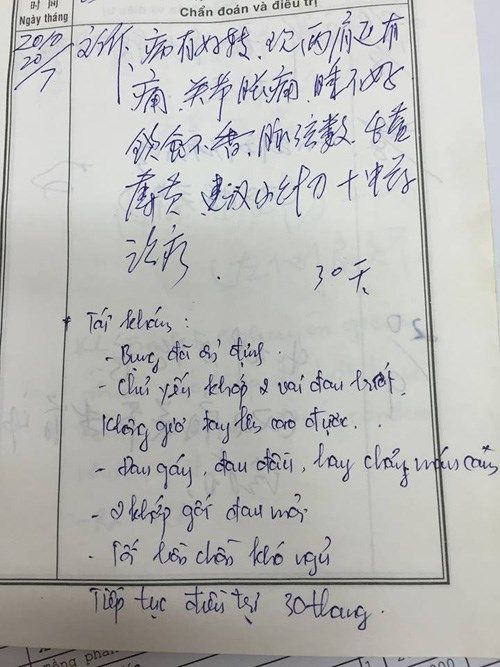 时 间
Ngày tháng
Chẩn đoán và điều trị
2010
20/7
病有好转. 次两肩还有
痛. 关节胀痛. 睡不好
饮食不香. 脉弦数. 舌苔
薄黄. 建议小针刀十中药
治疗. 30天
Tái khám:
- Bụng đã ổn định.
- Chủ yếu khớp 2 vai đau buốt.
Không giơ tay lên cao được.
- Đau gáy, đau đầu, hay chảy máu cam
- 2 khớp gối đau mỏi
- Tối bồn chồn khó ngủ
Tiếp tục điều trị 30 thang.